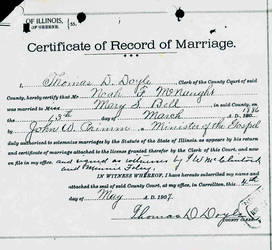 OF ILLINOIS,
} ss.
Certificate of Record of Marriage.
I, Thomas D. Doyle Clerk of the County Court of said
County, hereby certify that Mr. Noah F McNaught
was married to Miss Mary S. Bell in said County, on
the 13th day of March A.D. 1886
by John W. Primm a Minister of the Gospel
duly authorized to solemnize marriages by the Statute of the State of Illinois as appears by his return
and certificate of marriage attached to the license granted therefor by the Clerk of this Court and now
on file in my office, and signed as witnesses by J W McClintock
and Minnie Foley.
IN WITNESS WHEREOF, I have hereunto subscribed my name and
attached the seal of said County Court, at my office, in Carrollton, this 4th
day of May A.D. 1907.
Thomas D Doyle
COUNTY CLERK